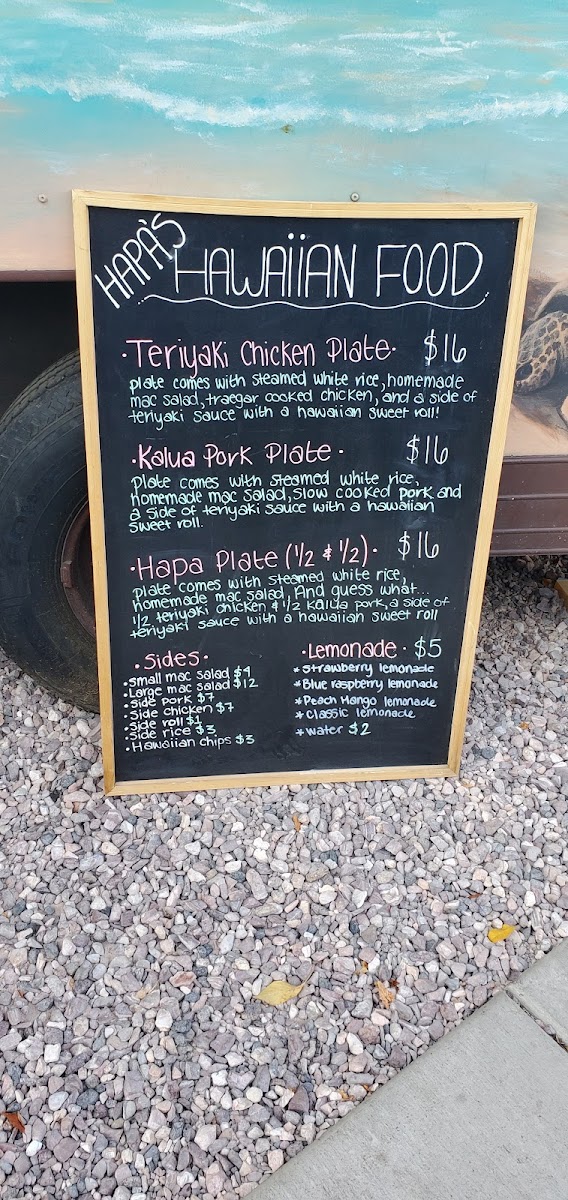 HAPA'S
HAWAiiAN FOOD
·Teriyaki Chicken Plate· $16
plate comes with steamed white rice, homemade
mac salad, traegar cooked chicken, and a side of
teriyaki sauce with a hawaiian sweet roll!
·Kalua Pork Plate· $16
Plate comes with steamed white rice,
homemade mac salad, slow cooked pork and
a side of teriyaki sauce with a hawaiian
sweet roll.
·Hapa Plate (1/2 & 1/2)· $16
Plate comes with steamed white rice,
homemade mac salad, And guess what...
1/2 teriyaki chicken & 1/2 kalua pork, a side of
teriyaki sauce with a hawaiian sweet roll
·Sides·
·small mac salad $4
·Large mac salad $12
·side pork $7
·Side chicken $7
·Side roll $1
·Side rice $3
·Hawaiian chips $3
·Lemonade· $5
*Strawberry lemonade
*Blue raspberry lemonade
*Peach Mango lemonade
*Classic lemonade
*water $2